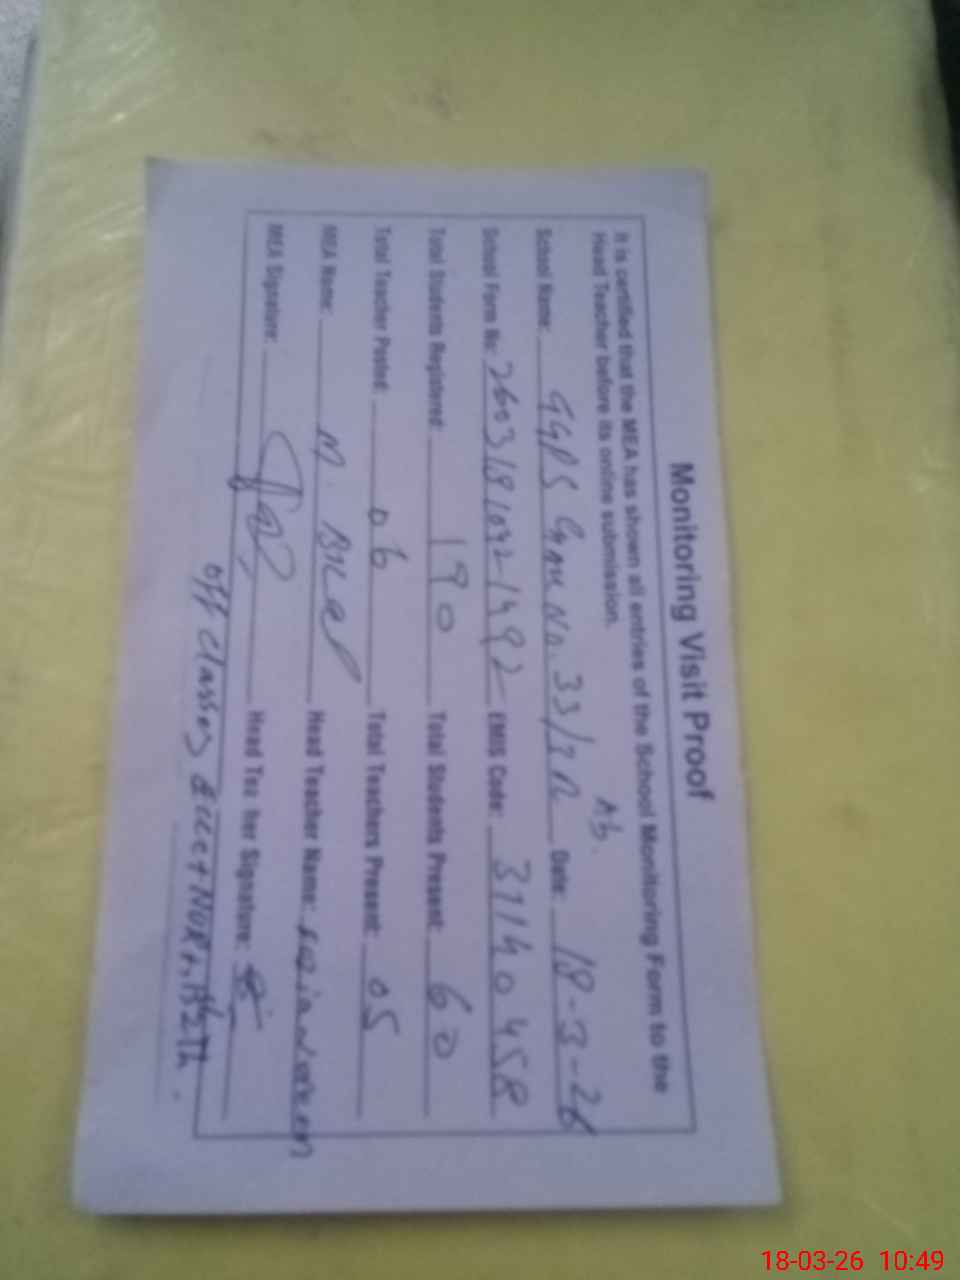 Monitoring Visit Proof
It is certified that the MEA has shown all entries of the School Monitoring Form to the
Head Teacher before its online submission.
Ab.
School Name: GGPS Chak No. 33/3R Date: 18-3-26
School Form No: EMIS Code: 31140458
Total Students Registered: 190 Total Students Present: 60
Total Teacher Posted: 06 Total Teachers Present: 05
MEA Name: M. Bilal Head Teacher Name:
MEA Signature: Head Teacher Signature:
off classes
18-03-26 10:49